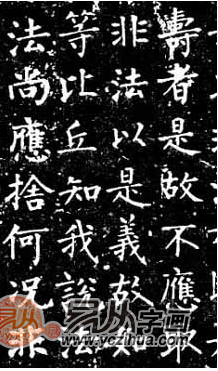 壽者是故不應取
非法以是義故如
等比丘知我說法
法尚應捨何況非
易从
易从字画
www.yczihua.com